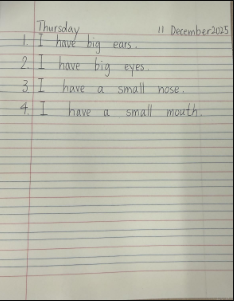 Thursday 11 December 2025
1. I have big ears.
2. I have big eyes.
3. I have a small nose.
4. I have a small mouth.